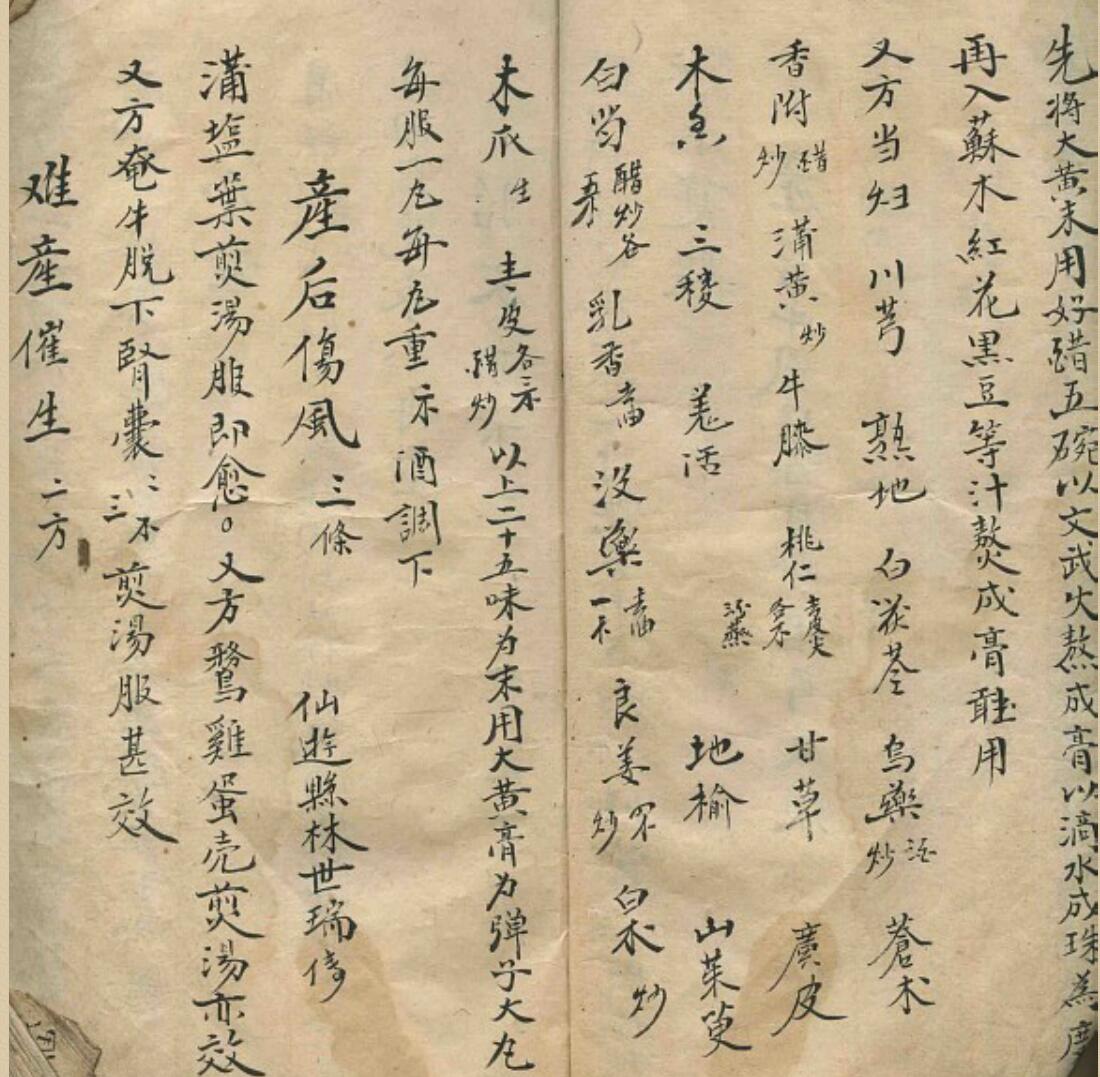 先将大黄末用好醋五碗以文武火熬成膏以滴水成珠為度
再入蘇木紅花黑豆等汁熬成膏聴用
又方当归 川芎 熟地 白茯苓 乌藥酒炒 蒼术
香附醋炒 蒲黄炒 牛膝 桃仁 甘草 廣皮
木香 三稜 羌活 地榆 山茱萸
白芍醋炒各五 乳香 没藥 良姜炒 白术炒
木瓜生 青皮各三 醋炒 以上二十五味为末用大黄膏为弹子大丸
每服一丸每丸重 酒調下
產后傷風三條 仙遊縣林世瑞傳
蒲塩葉煎湯服即愈。又方 雞蛋壳煎湯亦效
又方奄牛脱下腎囊 煎湯服甚效
难產催生二方